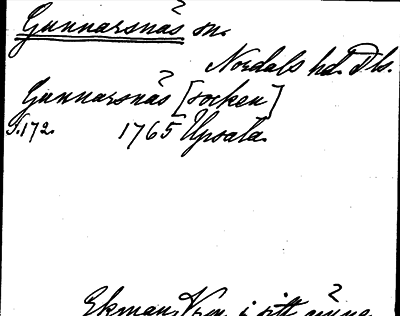 Gunnarsnäs sn.
Nordals hd. Dls.
Gunnarsnäs [socken]
S.172. 1765 Upsala.
Ekman, i sitt